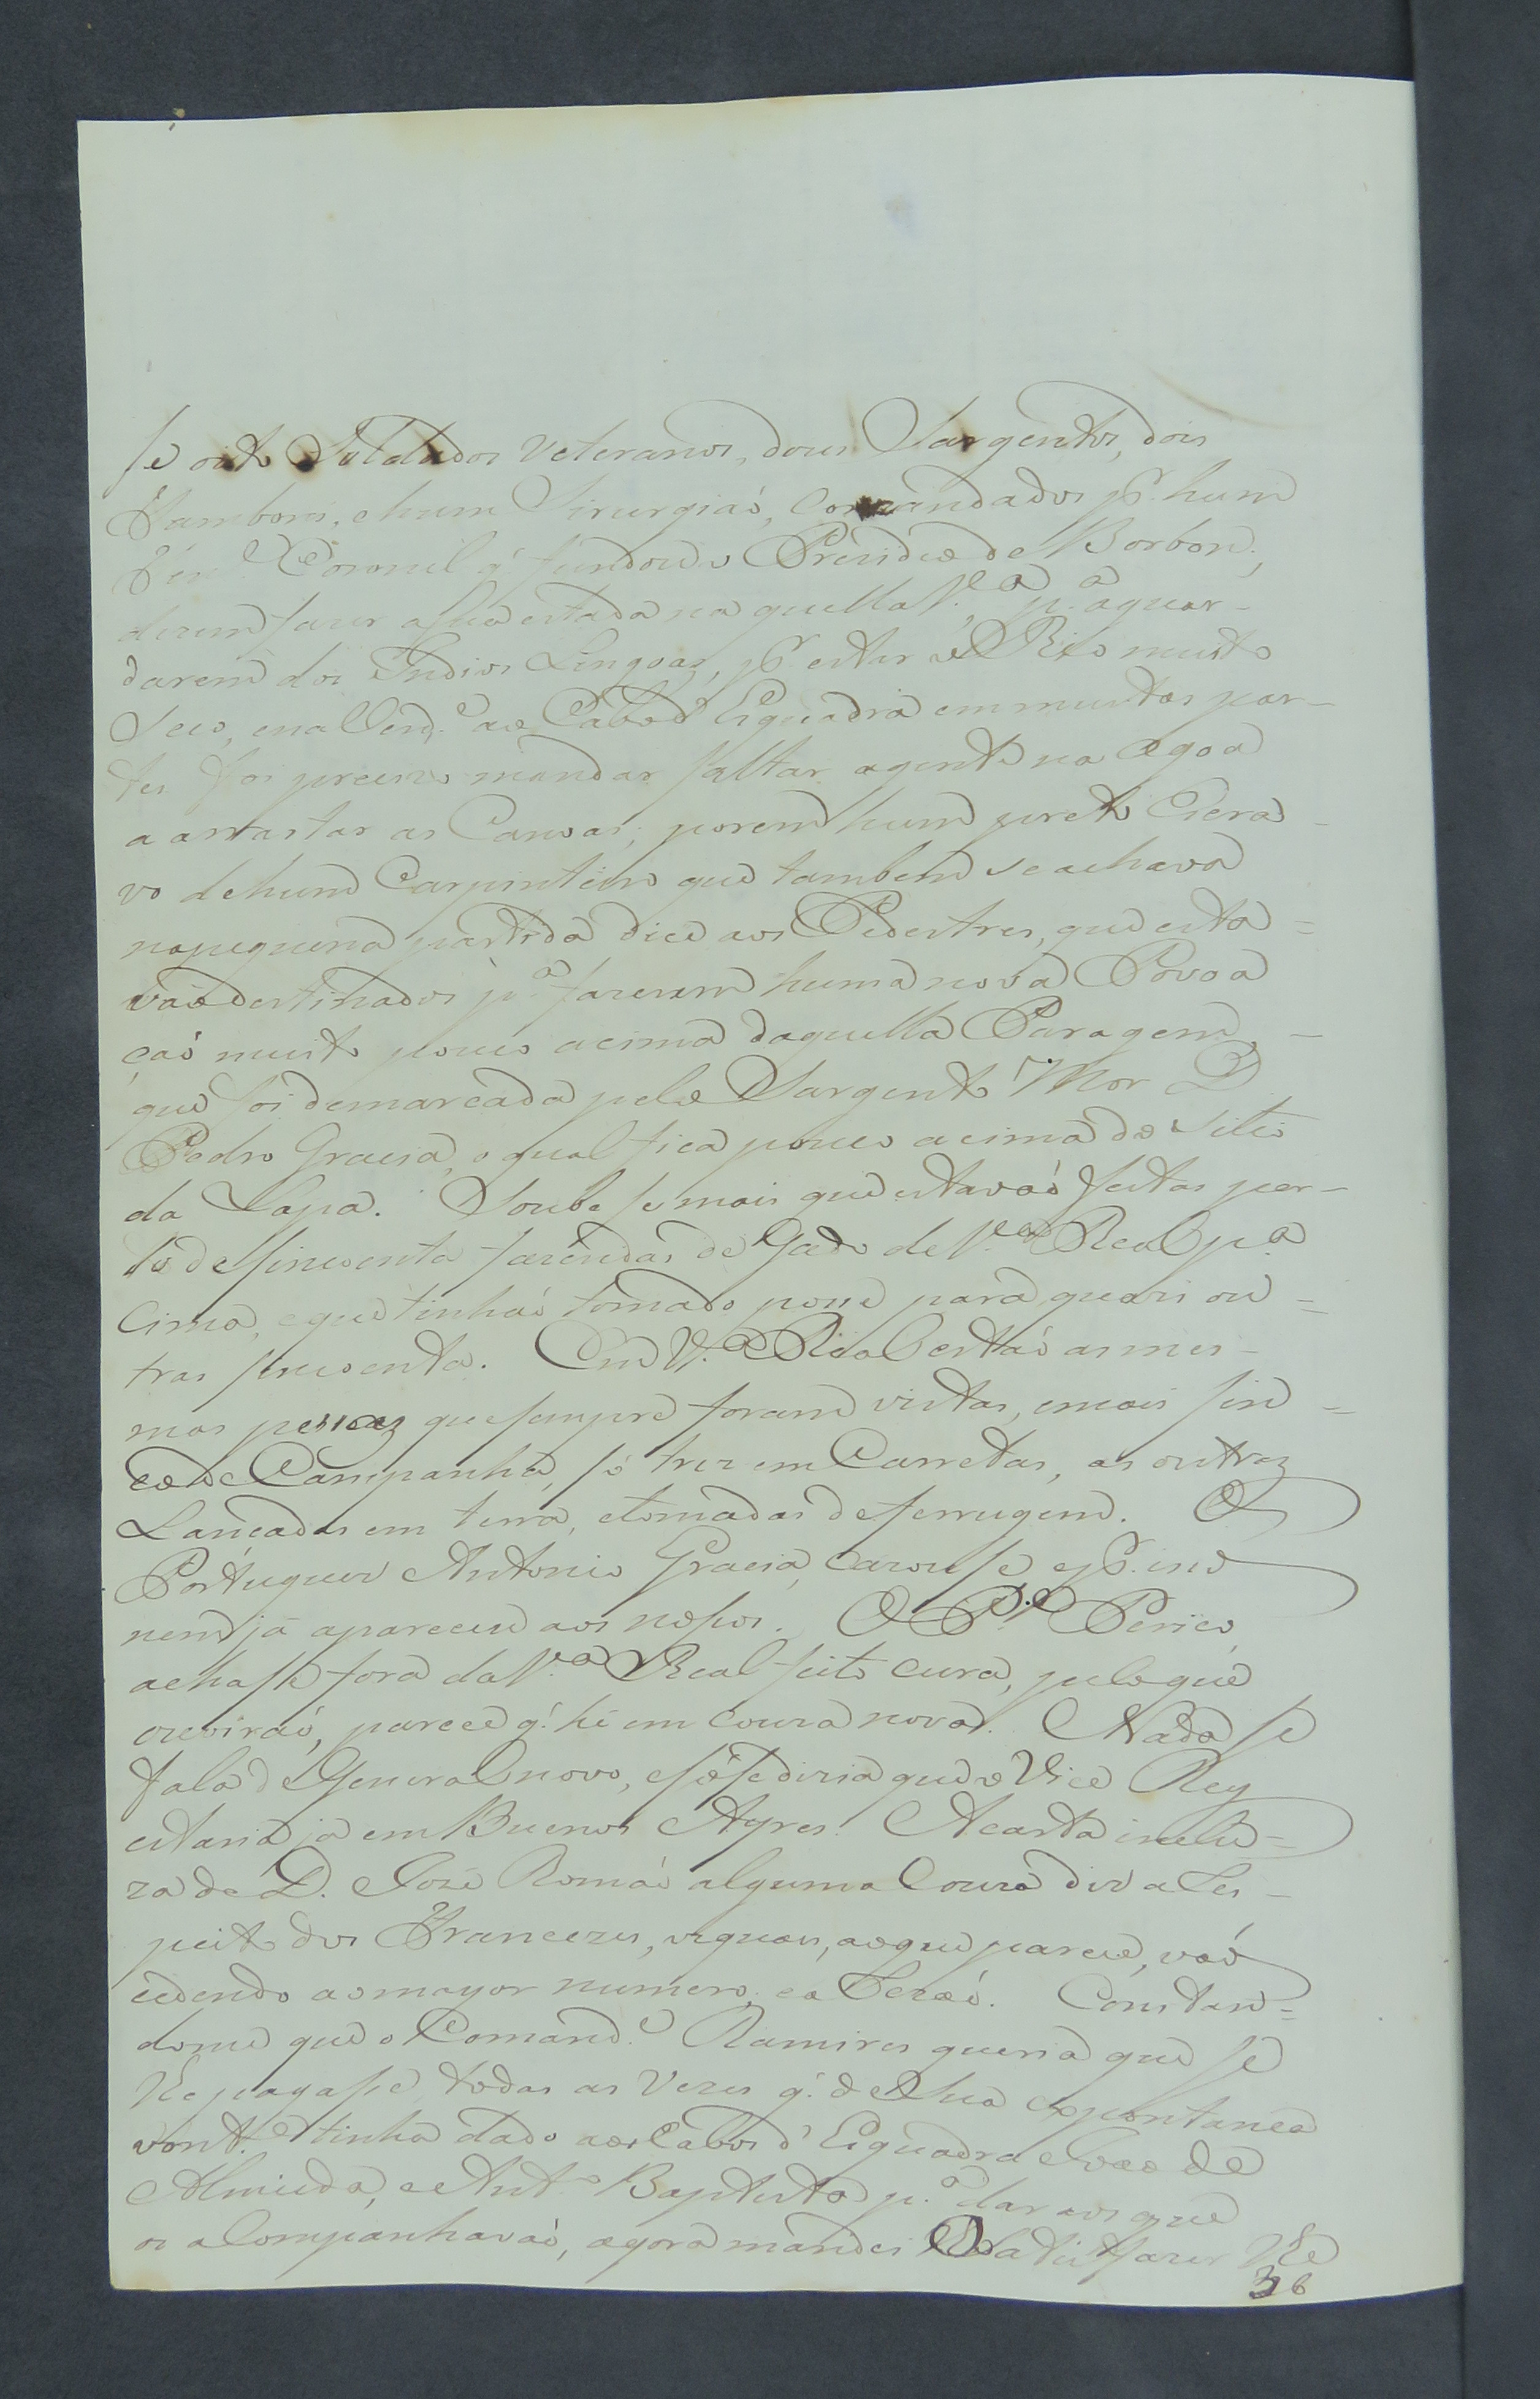 se oito Soldados Veteranos, dous Sargentos, dois
Tambores, e hum Sirurgiaó, Comandados pr. hum
Ten.e Coronel q' fundou o Prezidio de Borbon;
dizem fazer a sua estada na quella V.a, p.a aguar-
darem dos Indios Lingoas, pr. estar o Rio muito
Seco, e na Vend.e ao Cabo d' Esquadra em muitas par-
tes foi precizo mandar saltar agente na agoa
a arrastar as Canoas; porem hum preto Escra-
vo de hum Carpinteiro que tambem se achava
na pequena partida dice aos Pedestres, que esta=
vaó destinados p.a fazerem huma nova Povoa
çaó muito pouco acima daquella Paragem, -
que foi demarcada pelo Sargento Mor D.
Pedro Gracia, o qual fica pouco acima do Sitio
da Lapa. Soube se mais que estavaó feitas per-
to de sincoenta fazendas de Gado de V.a Real p.a
Cima, e que tinhaó tomado posse para quazi ou=
tras sincoenta. Em V.a Real estaó as mes-
mas pessas que sempre foram vistas, e mais sin=
co de Campanha, só trez em Carretas, as outras
Lançadas em terra, e tomadas de ferrugem. O
Portuguez Antonio Gracia, cazou se, e pr. isso
nem já apareceu aos nossos. O P.e Perico,
achasse fora da V.a Real feito cura, pelo que
ouviraó, parece q' hé em couza nova. Nada se
fala de General novo, e só se dizia que o Vice Rey
estaria já em Buenos Ayres. A carta inclu=
za de D. Jozé Romaó alguma Couza diz a Res-
peito dos Francezes, os quaes, ao que parece, vaó
cedendo ao mayor numero, e a Rezaó. Constan=
dome que o Comand.e Ramires queria que se
lhe pagasse todas as Vezes q' de Sua expontanea
vont.e tinha dado aos Cabos d' Esquadra Joaó de
Almeida, e Ant.o Baptista p.a dar aos que
os a Companhavaó, agora mandei Satisfazer lhe
36